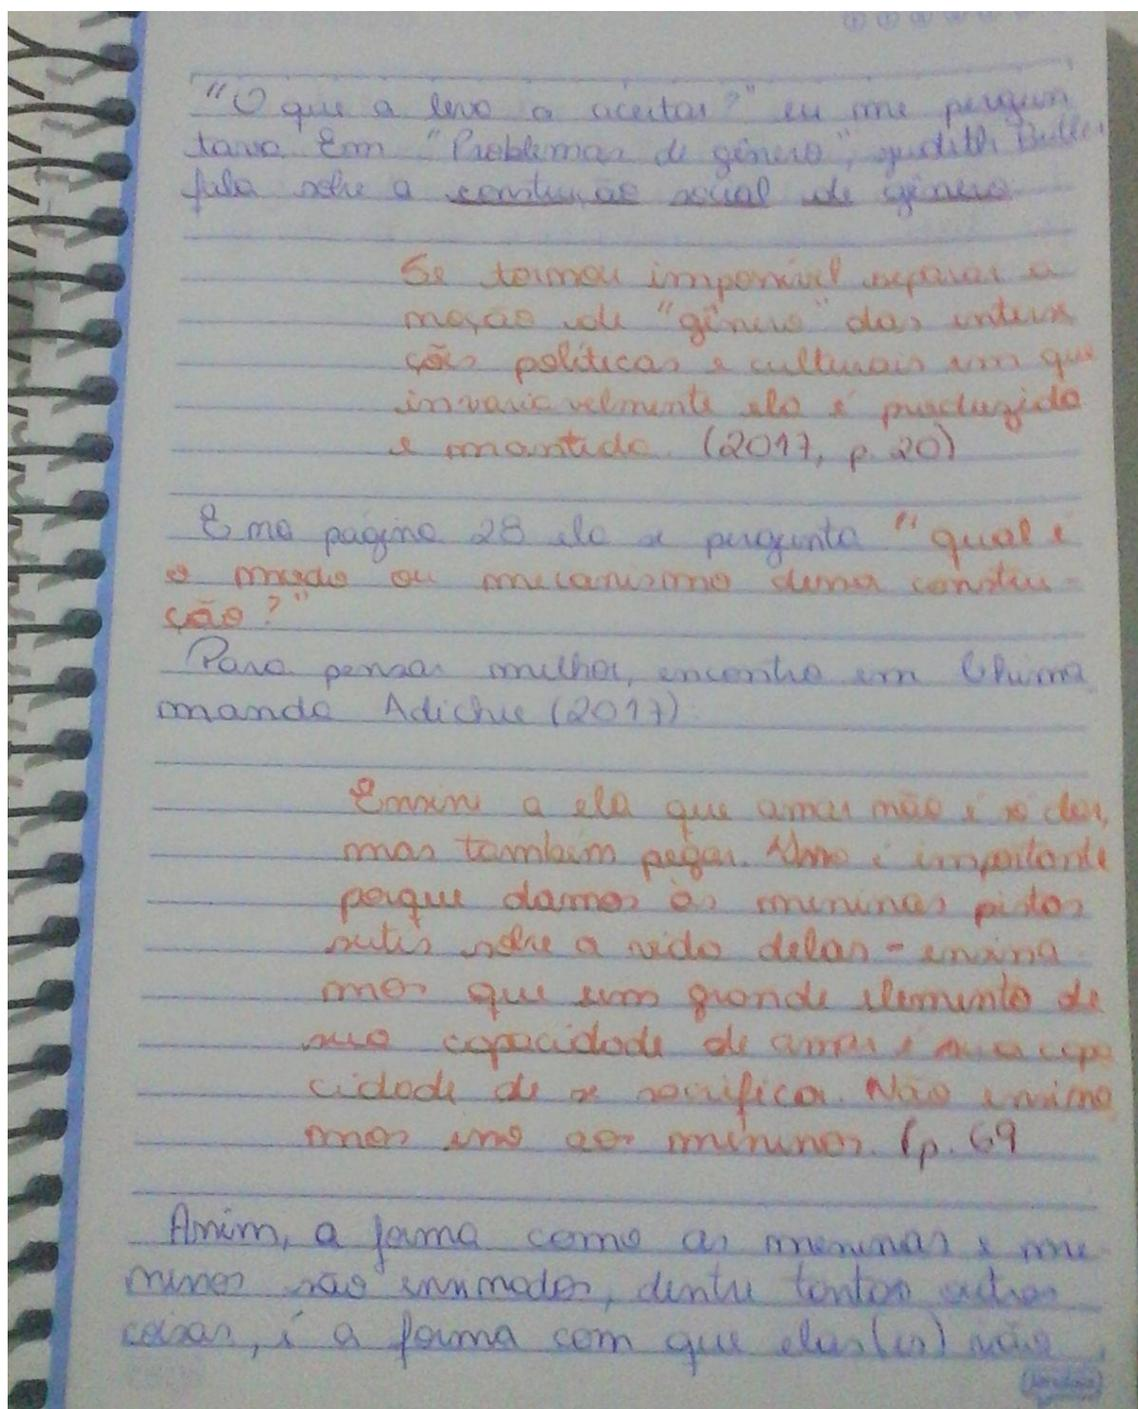 "O que a leva a aceitar?" eu me pergun
tava. Em "Problemas de gênero", Judith Butler
fala sobre a construção social de gênero.
Se tornou impossível separar a
noção de "gênero" das interse
ções políticas e culturais em que
invariavelmente ela é produzida
e mantida. (2017, p. 20)
E na página 28 ela se pergunta "qual é
o modo ou mecanismo dessa constru-
ção?"
Para pensar melhor, encontro em Chima
manda Adichie (2017)
Ensine a ela que amar não é só dar,
mas também pegar. Isso é importante
porque damos às meninas pistas
sutis sobre a vida delas - ensina
mos que um grande elemento de
sua capacidade de amar é sua capa
cidade de se sacrificar. Não ensina
mos isso aos meninos. (p. 69
Assim, a forma como as meninas e me
ninos são ensinados, dentre tantas outras
coisas, é a forma com que elas(es) vão